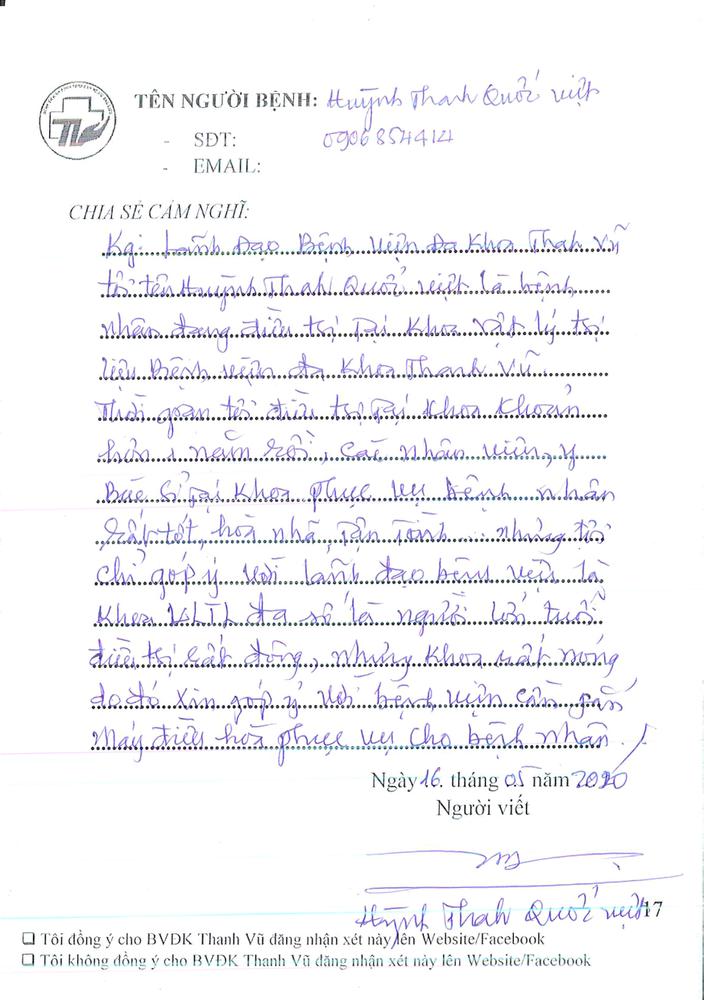 TÊN NGƯỜI BỆNH: Huỳnh Thanh Quốc Việt
- SĐT: 0906854414
- EMAIL:
CHIA SẺ CẢM NGHĨ:
Kg: Lãnh Đạo Bệnh viện Đa Khoa Thanh Vũ
tôi tên Huỳnh Thanh Quốc Việt là bệnh
nhân đang điều trị Tại Khoa vật lý trị
liệu Bệnh viện đa Khoa Thanh Vũ.
Thời gian tôi điều trị Tại Khoa Khoản
hơn 1 năm rồi, các nhân viên, y
Bác sĩ Tại Khoa phục vụ bệnh nhân
rất tốt, hoà nhã, Tận Tình... nhưng tôi
chỉ góp ý với lãnh đạo bệnh viện là
Khoa VLTL đa số là người lớn tuổi
điều trị rất đông, nhưng Khoa rất nóng
do đó xin góp ý với bệnh viện cần gắn
Máy điều hoà phục vụ cho bệnh nhân.
Ngày 16. tháng 05 năm 2020
Người viết
Huỳnh Thanh Quốc Việt
17
❑ Tôi đồng ý cho BVĐK Thanh Vũ đăng nhận xét này lên Website/Facebook
❑ Tôi không đồng ý cho BVĐK Thanh Vũ đăng nhận xét này lên Website/Facebook